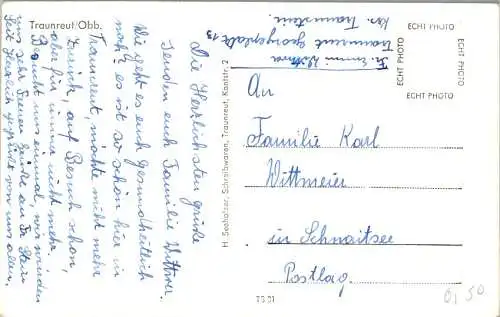 Traunreut/Obb.
Die Herzlichsten Grüße
senden euch Familie Wittner.
Wie geht es euch gesundheitlich
noch? es ist so schön hier in
Traunreut, möchte nicht mehr
zurück, auf Besuch schon,
aber für immer nicht mehr.
Besucht uns einmal, wir würden
uns sehr freuen Grüße an Fr Stein
Seit Herzlich gegrüßt von uns allen.
H. Seeholzer, Schreibwaren, Traunreut, Kantstr. 2
Traunreut Georgenplatz 13
Kr. Traunstein.
ECHT PHOTO
ECHT PHOTO
ECHT PHOTO
ECHT PHOTO
An
Familie Karl
Wittmeier
in Schnaitsee
Postlag.
TS 31
0,50